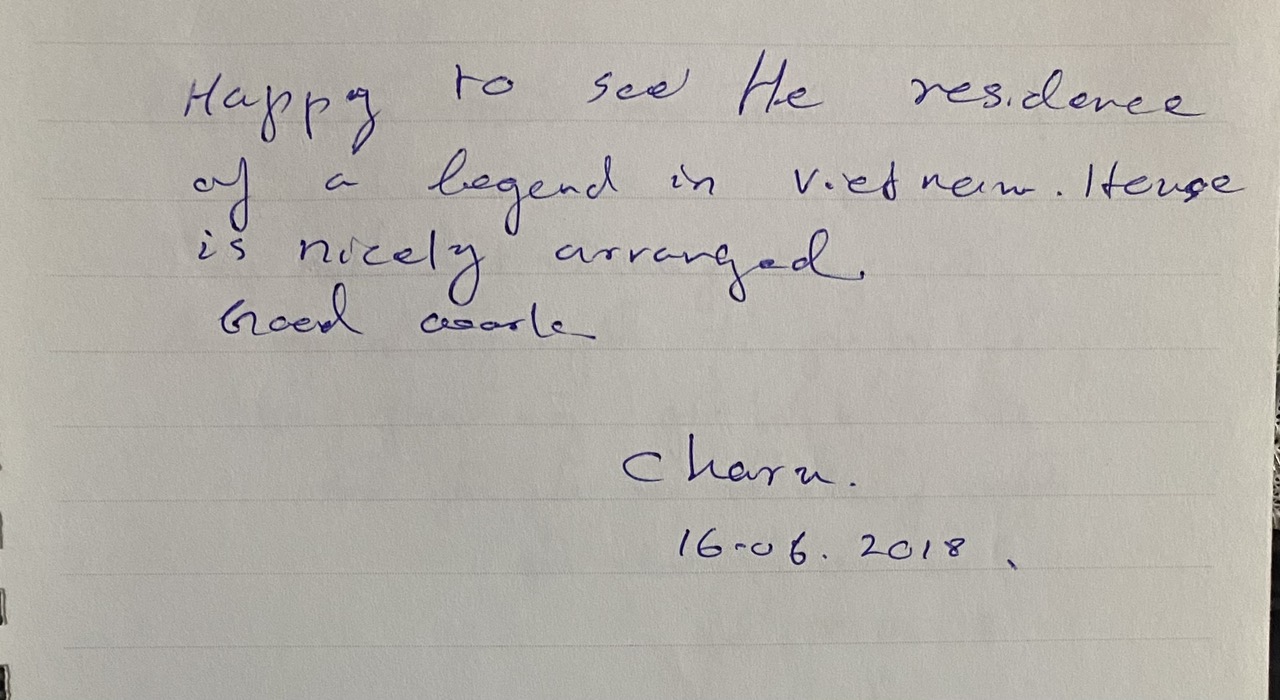 Happy to see the residence
of a legend in Vietnam. House
is nicely arranged.
Good work
Charu.
16-06. 2018.